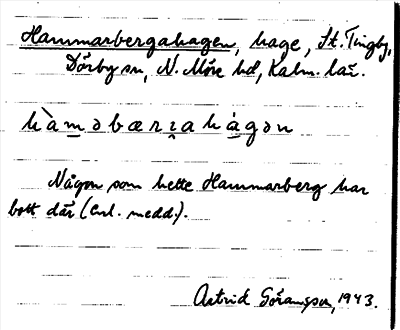 Hammarbergahagen, hage, St. Tingby,
Dörby sn, N. Möre hd, Kalm. län.
hàmǝbærɪ̯ahágǝn
Någon som hette Hammarberg har
bott där (enl. medd.).
Astrid Göransson, 1943.